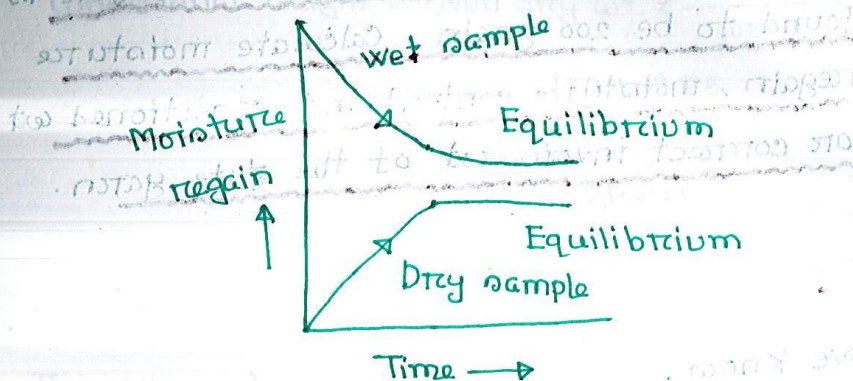 wet sample
Moisture
regain
Equilibrium
Equilibrium
Dry sample
Time